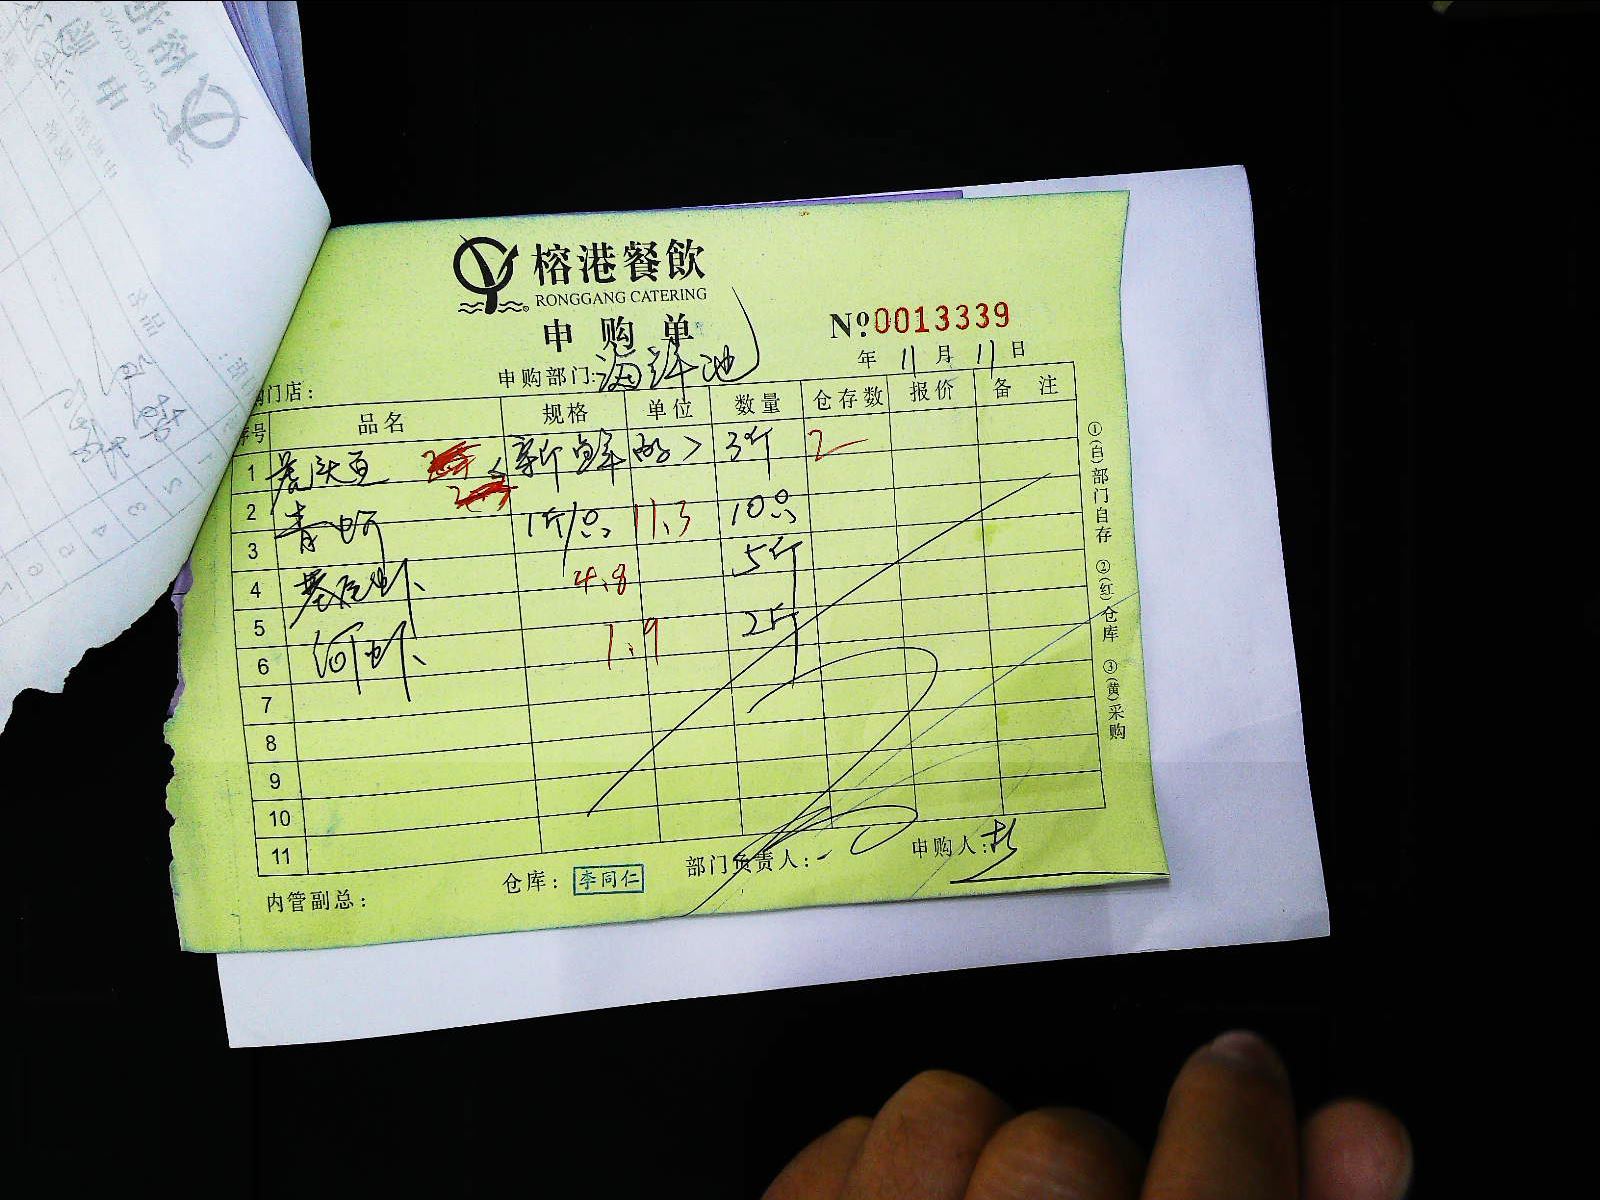 榕港餐飲
RONGGANG CATERING
申购单
№0013339
年 11 月 11 日
门店： 申购部门：海鲜池
序号 品名 规格 单位 数量 仓存数 报价 备注
1 新鲜 3斤 2
2 青 1斤/只 11.3 10只
3 5斤
4 基尾虾 4.8
5 2斤
6 河虾 1.9
7
8
9
10
11
内管副总： 仓库：李同仁 部门负责人： 申购人：
①(白)部门自存 ②(红)仓库 ③(黄)采购